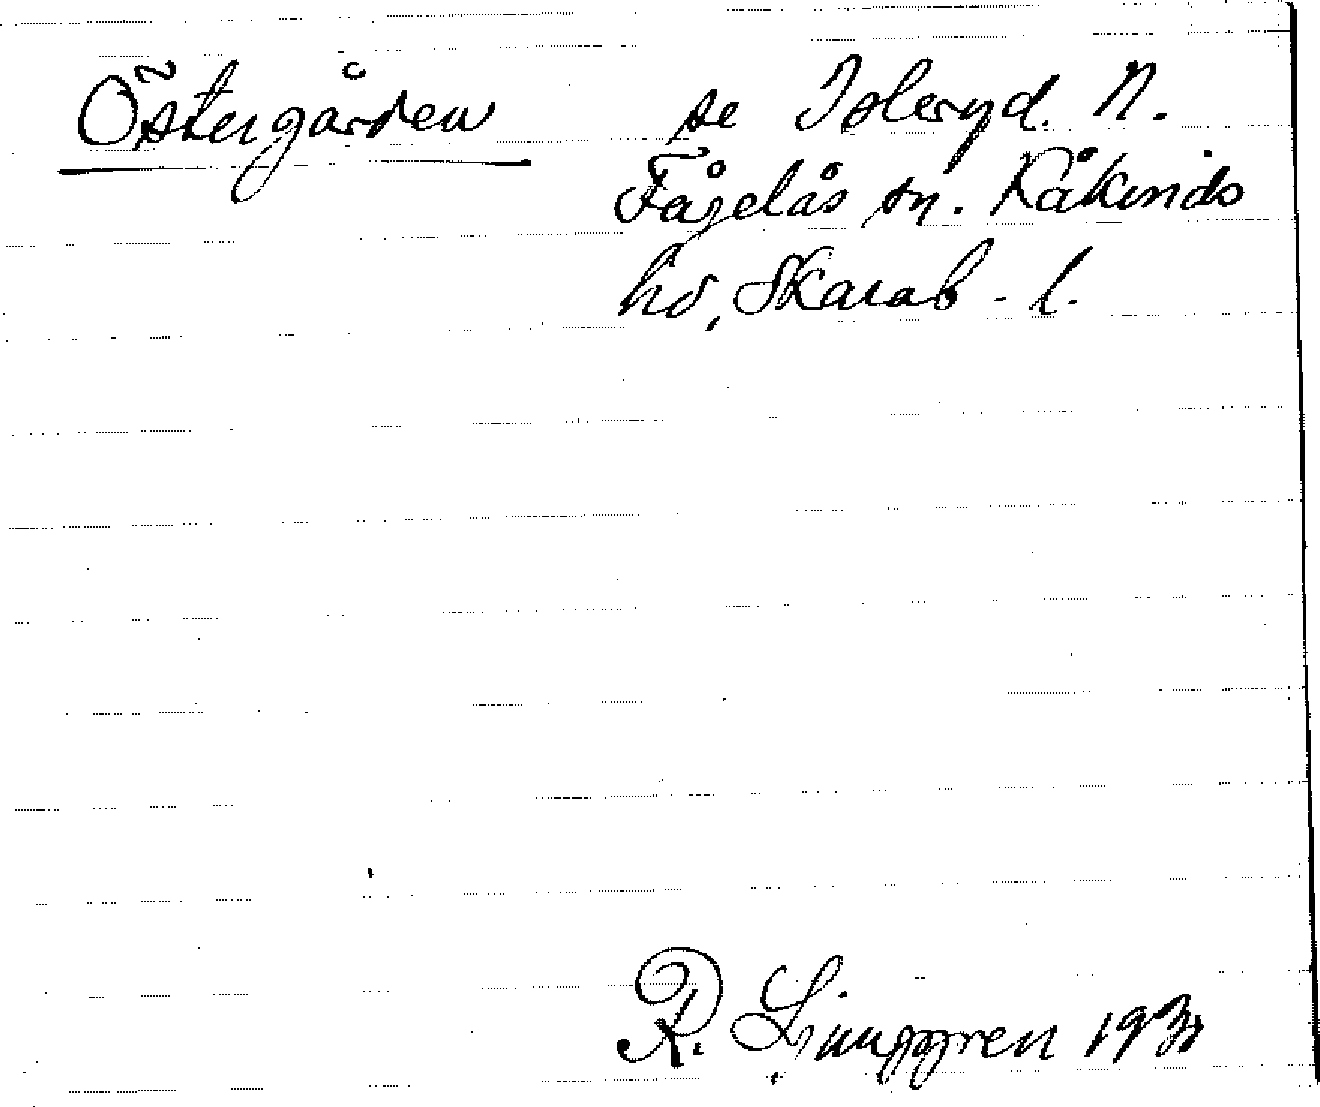 Östergården se Isleryd. N.
Fågelås sn. Kåkinds
hd, Skarab. l.
R. Ljunggren 1931